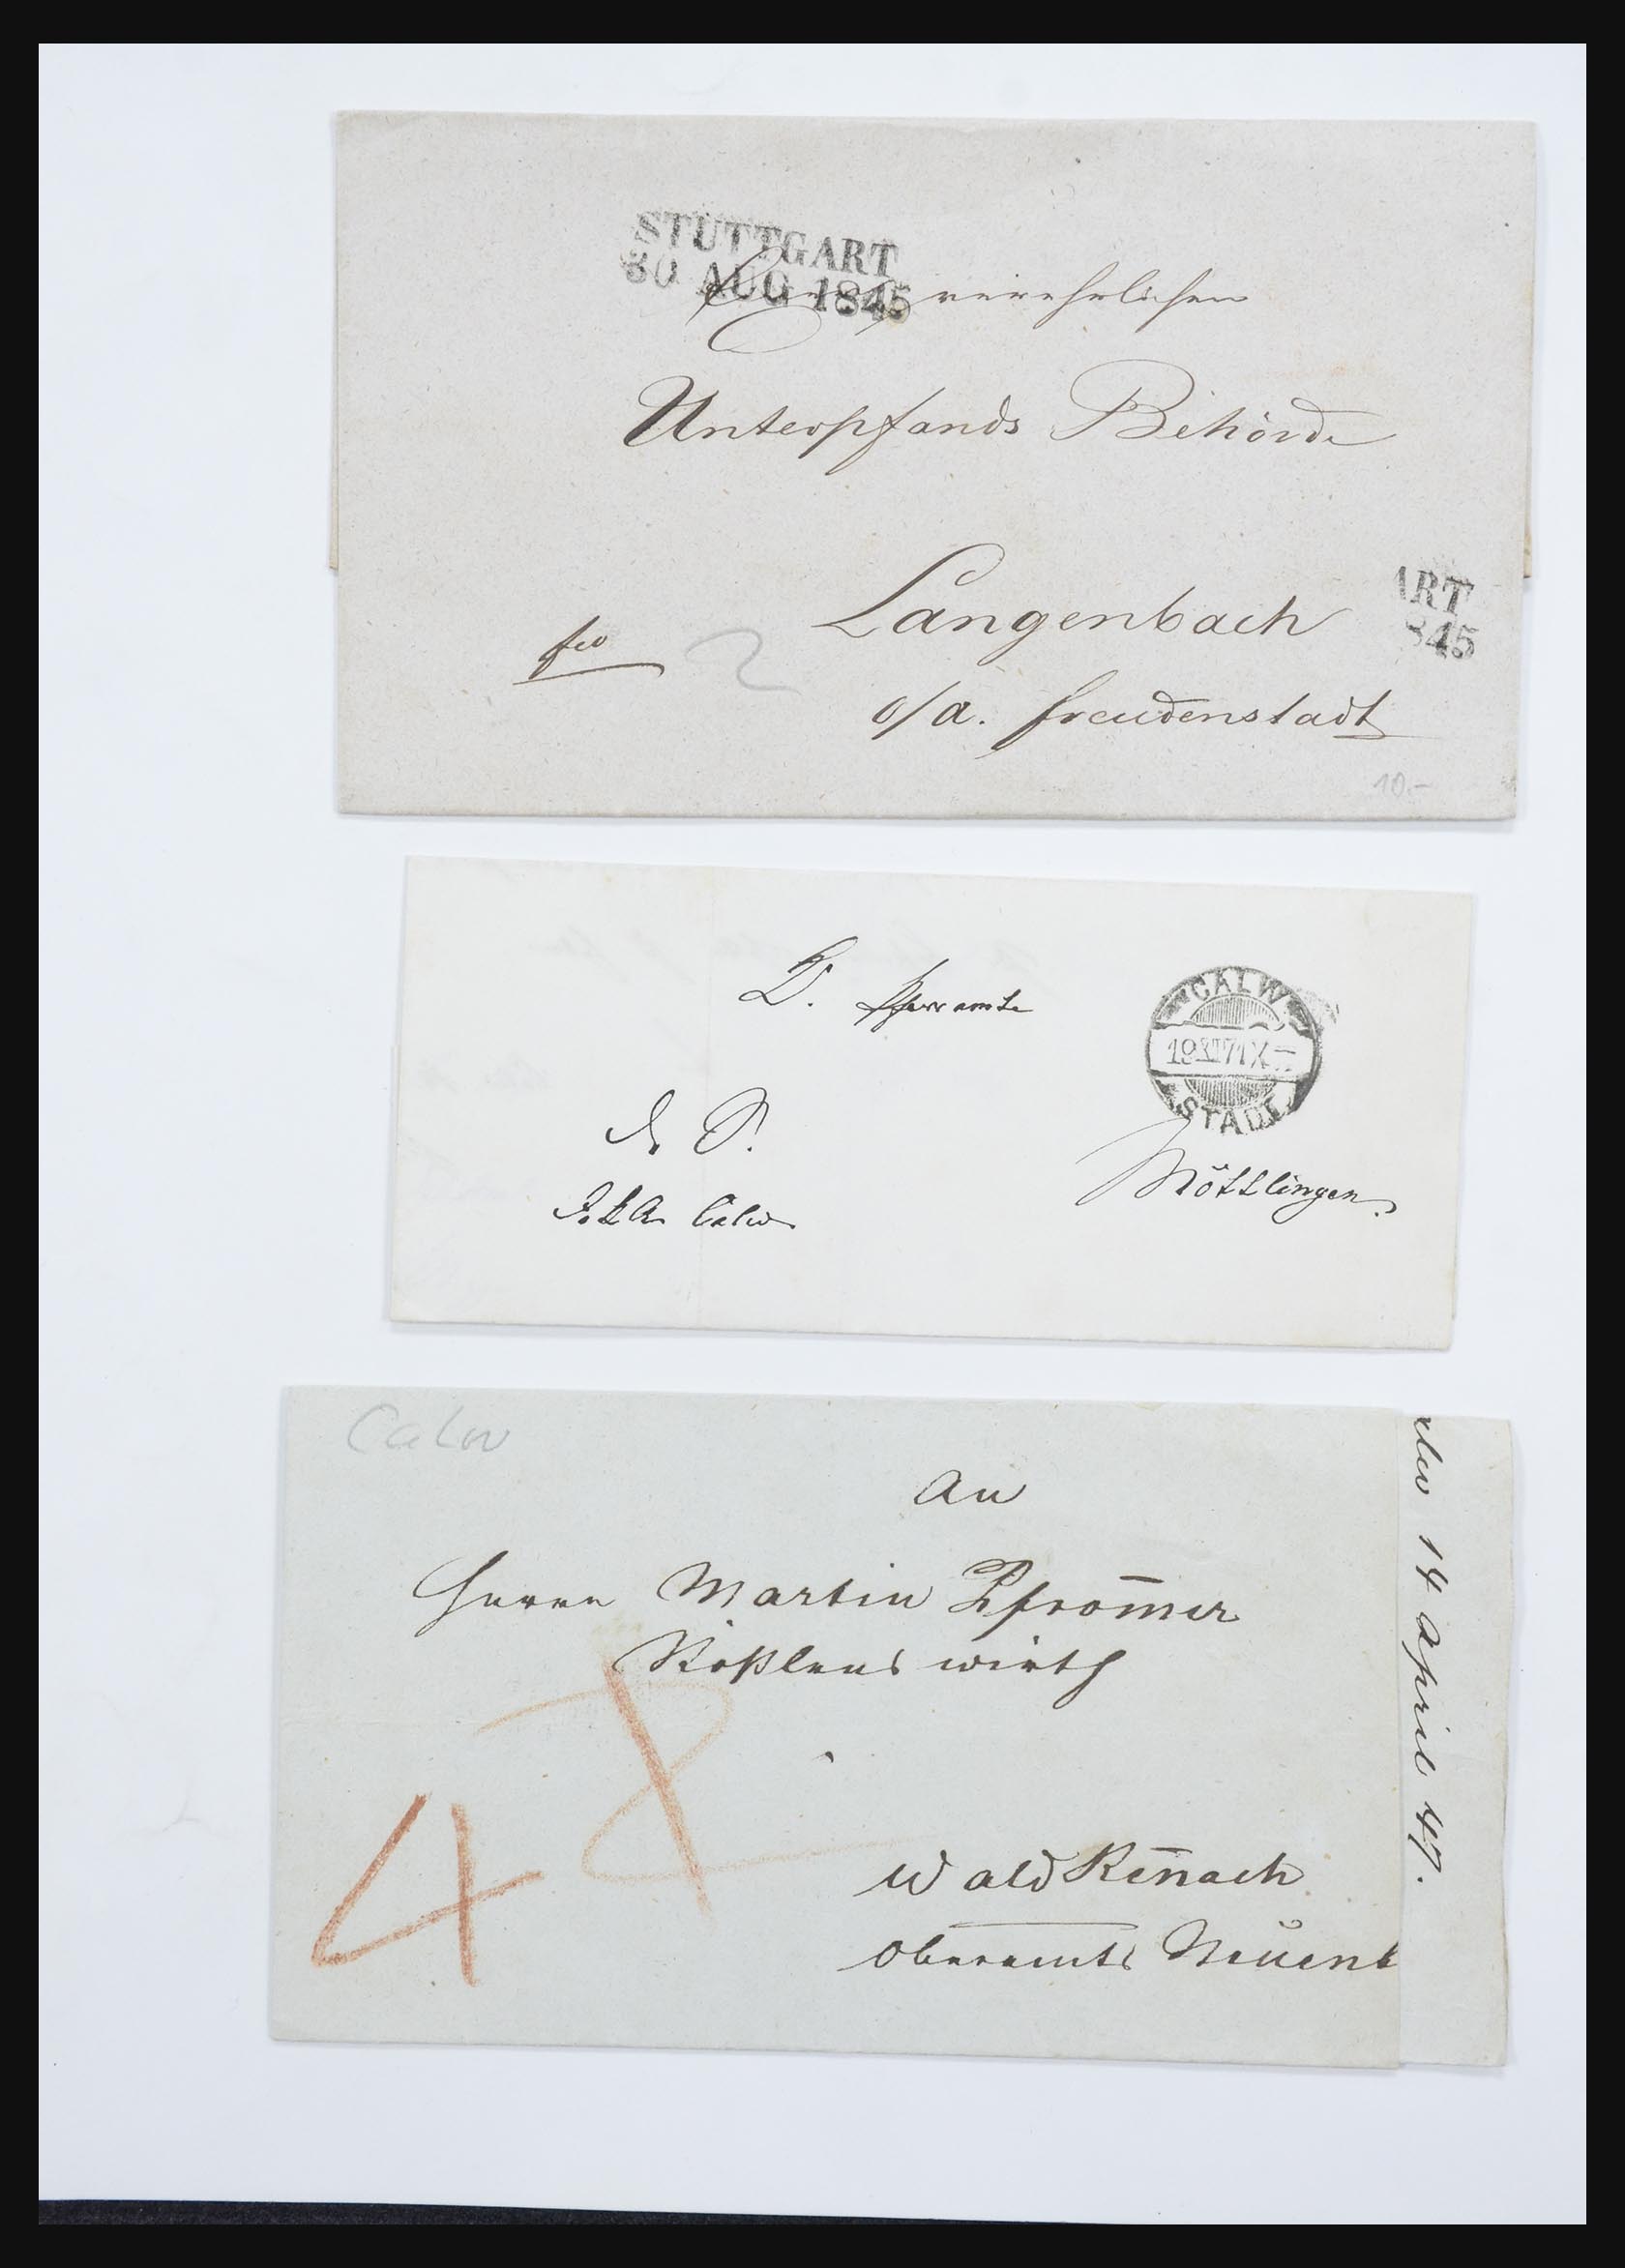 STUTTGART
30 AUG 1845
verehrlichen
Unterpfands Behörde
ART
845
Langenbach
fco 2
o/a. Freudenstadt
10.-
D. Pfarramte
CALW
19 XI 71 X
STADT
d. S.
Calw
Möttlingen.
Calw
An
Herrn Martin Pfrom̅er
Rößlens wirth
4 8
Wald Ren̅ach
Oberamts Neuenb
alw 14 April 47.